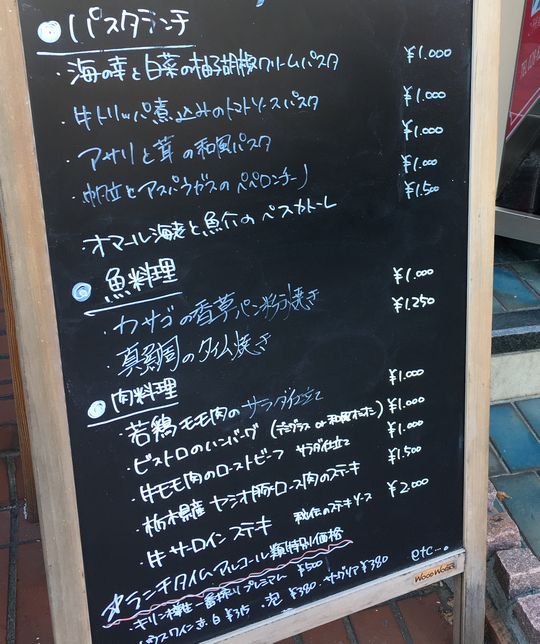 パスタランチ
・海の幸と白菜の柚子胡椒クリームパスタ ¥1.000
・牛トリッパ煮込みのトマトソースパスタ ¥1.000
・アサリと茸の和風パスタ ¥1.000
・帆立とアスパラガスのペペロンチーノ ¥1.000
オマール海老と魚介のペスカトーレ ¥1.500
魚料理
・カサゴの香草パン粉焼き ¥1.000
・真鯛のタイム焼き ¥1.250
肉料理
・若鶏モモ肉のサラダ仕立て ¥1.000
・ビストロのハンバーグ (デミグラス or 和風オニオン) ¥1.000
・牛モモ肉のローストビーフ サラダ仕立て ¥1.000
・栃木県産 ヤシオ豚ロース肉のステーキ ¥1.500
・牛サーロインステーキ 秘伝のステーキソース ¥2.000
☆ランチタイム アルコール類特別価格
・キリン樽生一番搾りプレミアム ¥500 etc...
・ハウスワイン 赤・白 ¥315 ・泡 ¥380 ・サングリア ¥380